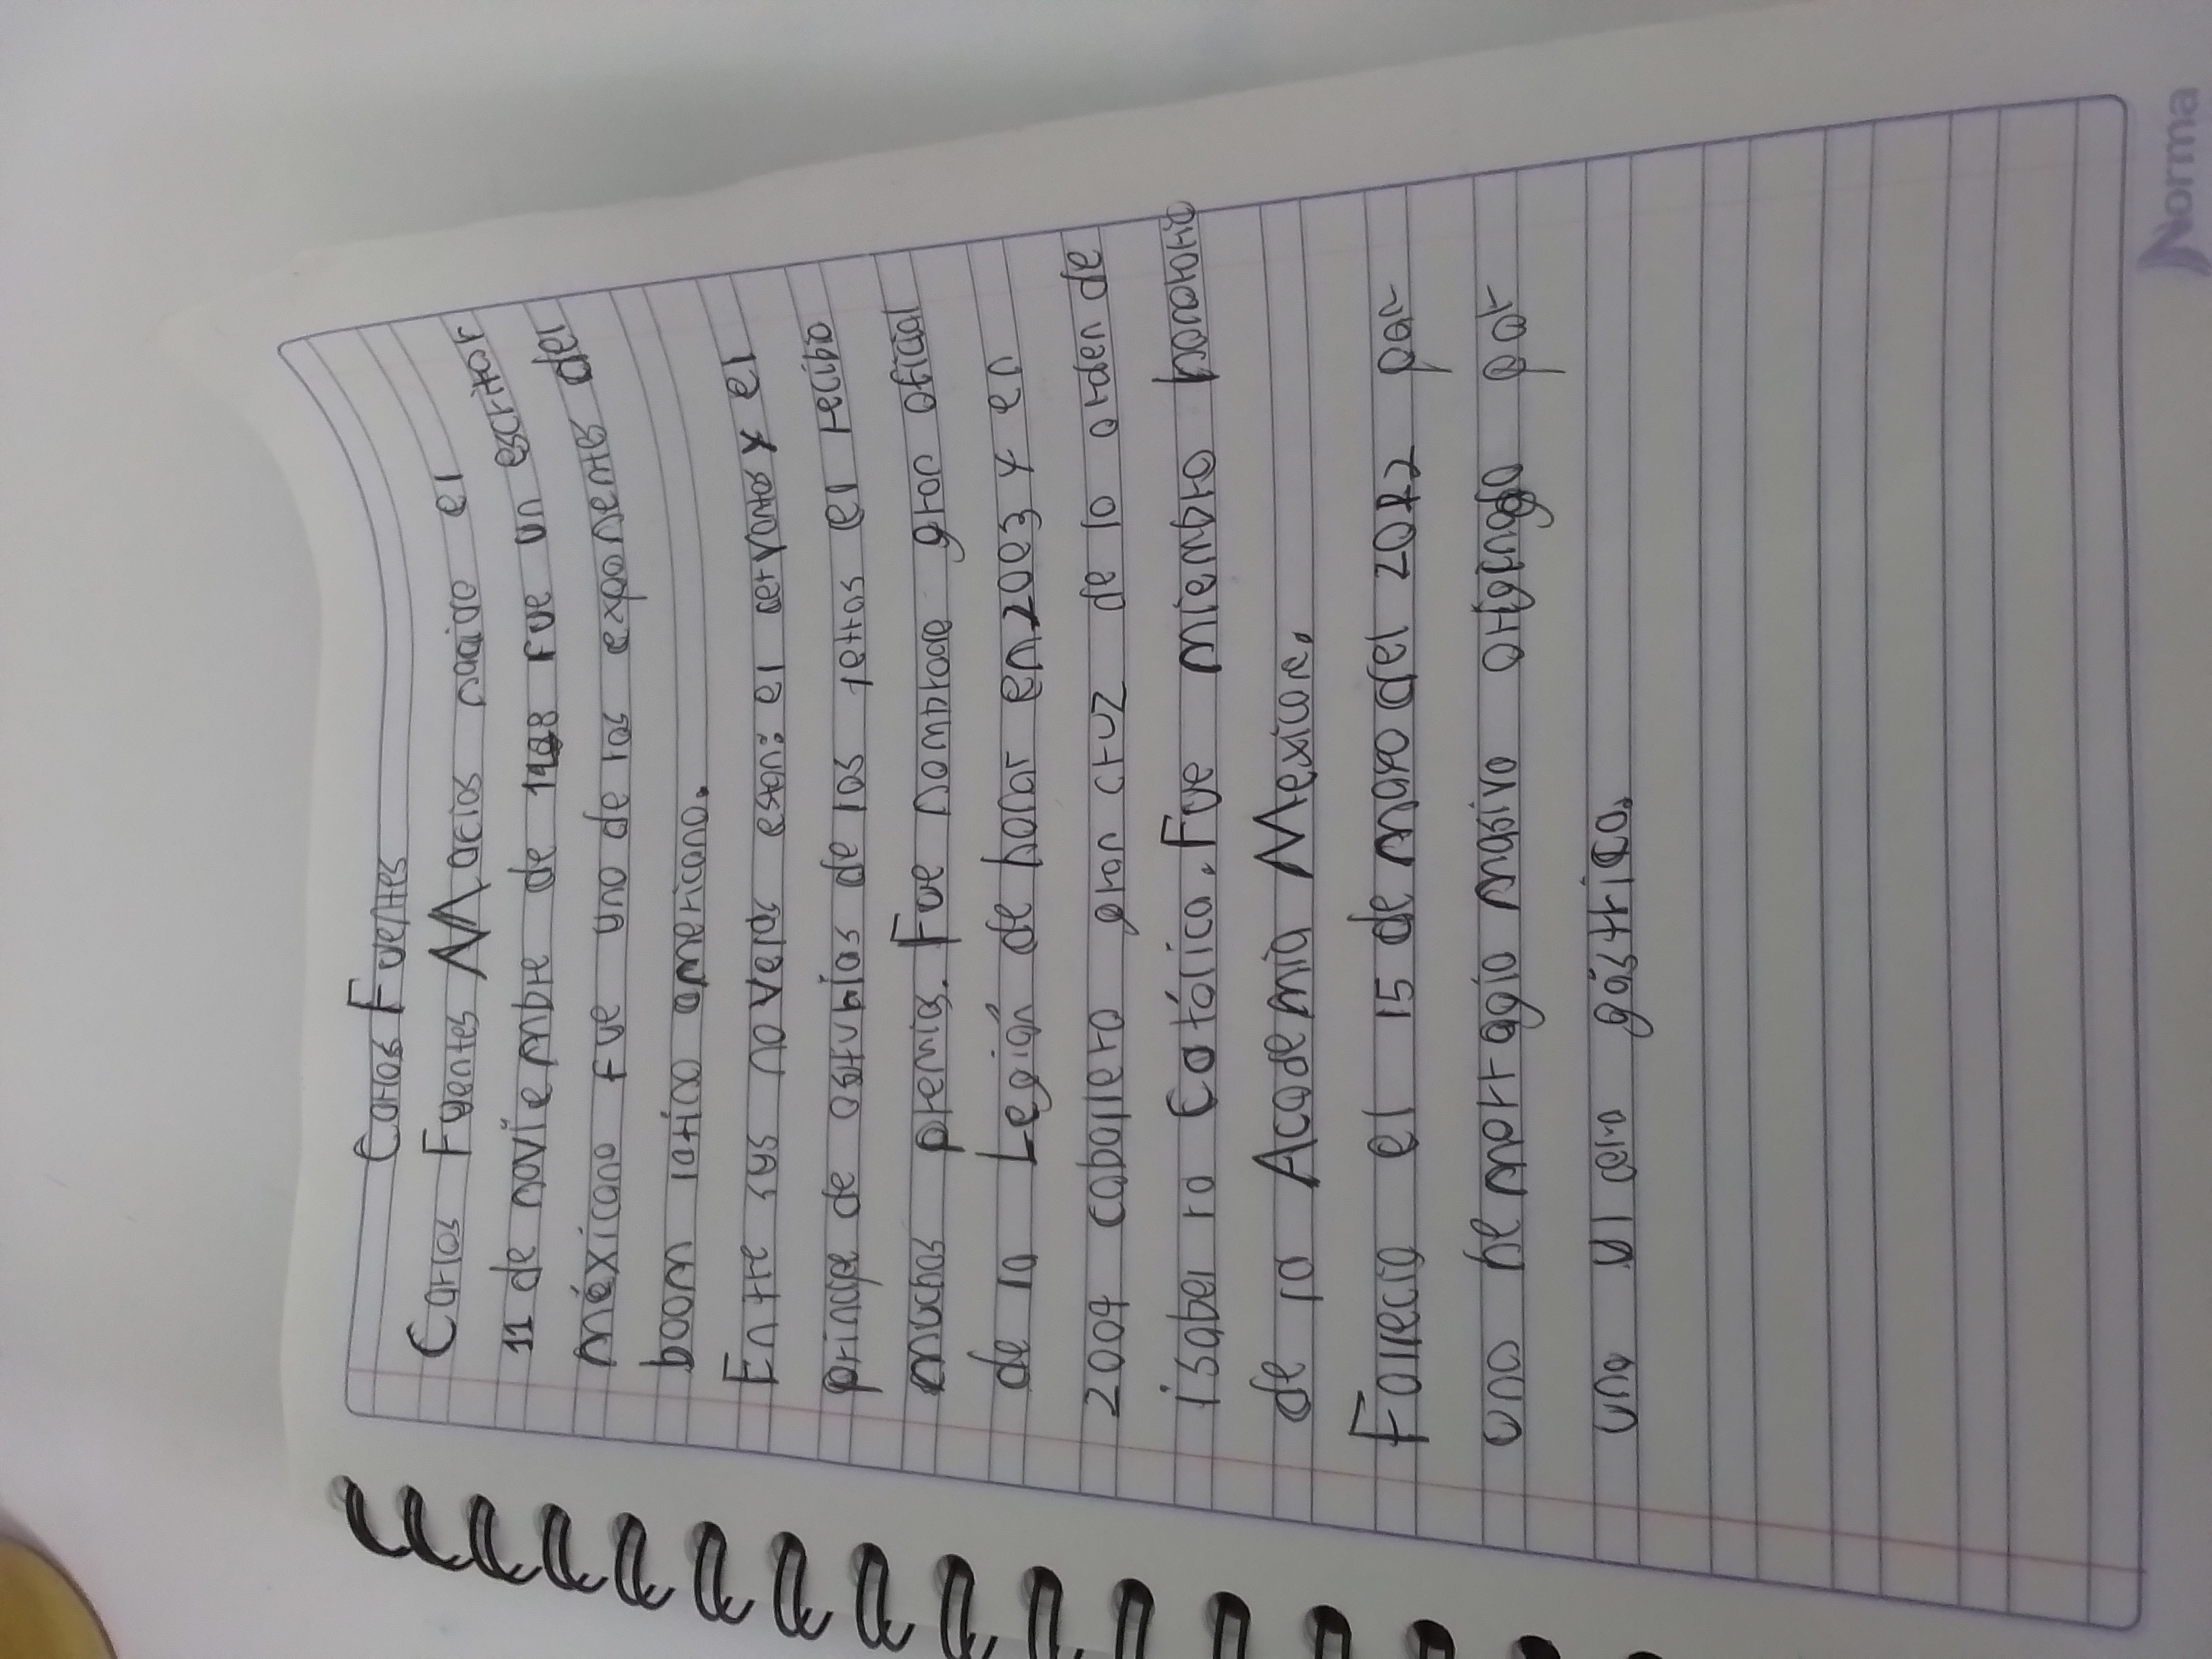 Carlos Fuentes
Carlos Fuentes Macios nacive el
11 de noviembre de 1928 Fue un escritor
méxicano fue uno de los exponentes del
boom latico americano.
Entre sus novelas esta: la neryora y el
principe de asturias de las letras el recibo
muchos premios. Fue nombrado gran oficial
de la Legión de honor en 2003 y en
2009 caballero gran cruz de la orden de
isabel la Católica. Fue miembro honorario
de la Academia Mexicana.
Fallecio el 15 de mayo del 2012 por
una hemorragia masiva originada por
una ulcera gástrica.
Norma